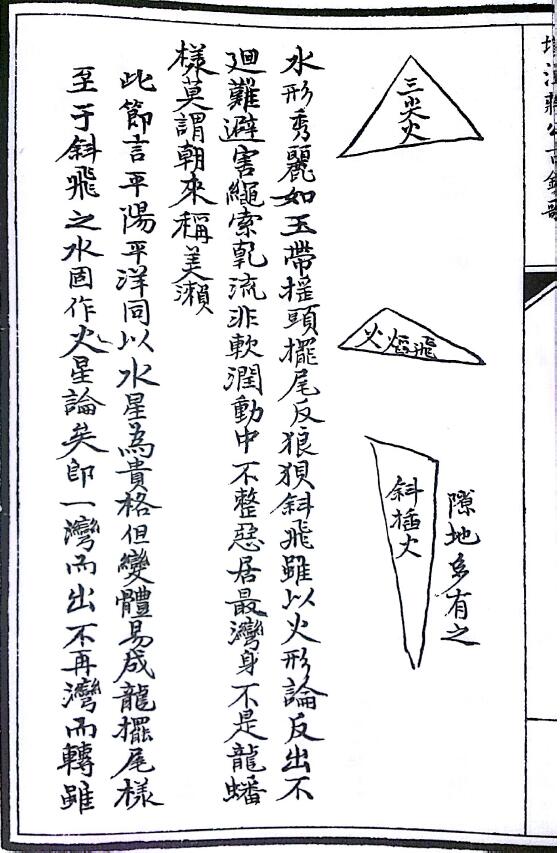 三尖火
飛熖火
斜插火
隙地多有之
水形秀麗如玉帶搖頭擺尾反狼狽斜飛雖以火形論反出不
廻難避害繩索乾流非軟潤動中不整惡居最灣身不是龍蟠
樣莫謂朝來稱美瀨
此節言平陽平洋同以水星為貴格但變體易成龍擺尾樣
至于斜飛之水固作火星論矣即一灣而出不再灣而轉雖